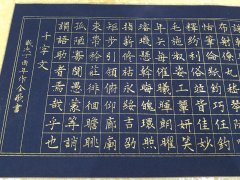 恬筆倫紙鈞巧任釣
釋紛利俗竝皆佳妙
毛施淑姿工顰妍笑
年矢每催曦暉朗曜
璇璣懸斡晦魄環照
指薪修祜永綏吉劭
矩步引領俯仰廊廟
束帶矜莊徘徊瞻眺
孤陋寡聞愚蒙等誚
謂語助者焉哉乎也
千字文